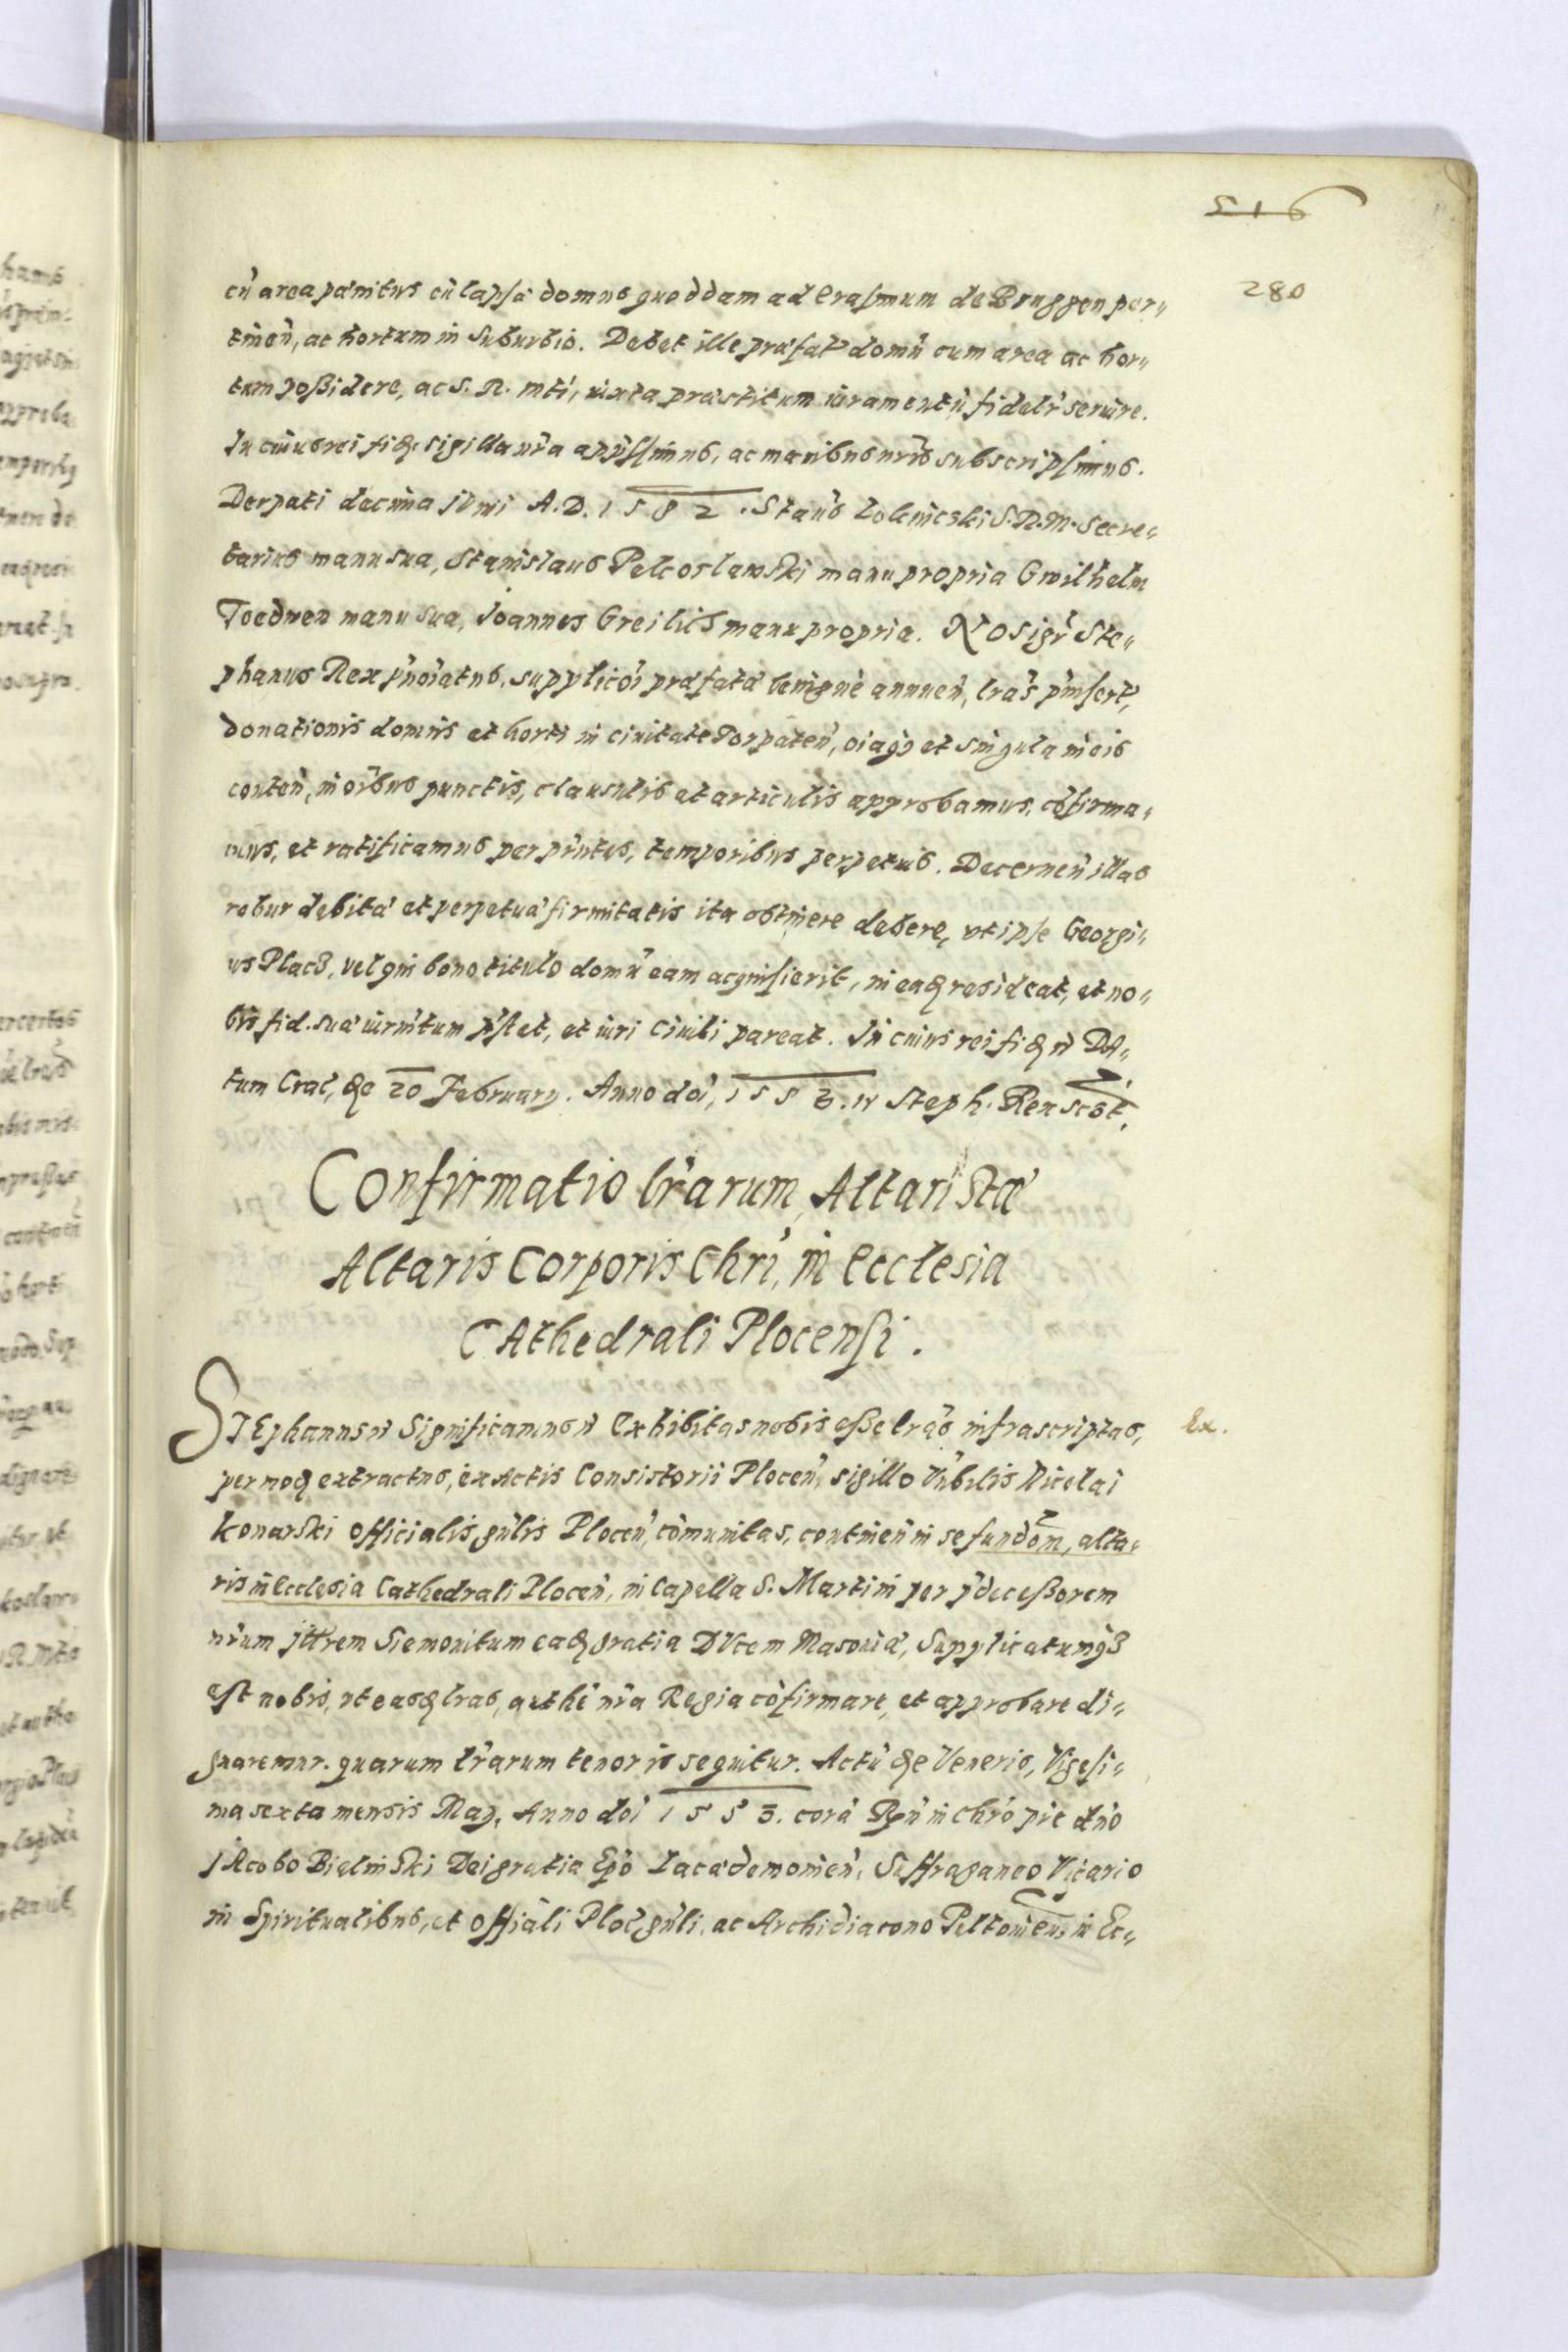 516
280
cū area pænitus cūlapsa domus quoddam ad Erasmum de Bruggen per„
tinen̄, ac hortum in suburbio. Debet ille præfat' domū cum area ac hor„
tum possidere, ac S. R. Mti, iuxta præstitum iuramentū fidelr̄ seruire.
In cuius rei fidē sigilla nr̄a appssimus, ac manibus nr̄is subscripsimus.
Derpati decima iuni A. D. 1582. Staūs Lolenicski S. R. M. Secre„
tarius manu sua, Stanislaus Pelcoslawski manu propria Gwilhelm
Toedwen manu sua, Joannes Greilich manu propria. Nos igr̄ Ste„
phanus Rex p̄noiatus, supplicōi præfatæ benignè annuen̄, lrās p̄insert,
donationis domus et horti in ciuitate Torpaten̄, oiaq₃ et singula in eis
conten̄, in oībus punctis, clausulis et articulis approbamus, cōfirma„
mus, et ratificamus per p̄ntes, temporibus perpetuis. Decernen̄ illas
robur debitæ et perpetuæ firmitatis ita obtinere debere, vt ipse Georgi„
us Place, vel qui bono titulo domū eam acquisierit, in eaq₃ resideat, et no„
bis fid. suæ iurmtum p̄stet, et iuri ciuili pareat. In cuius rei fidē &c Da„
tum Crac̄, die 20 February. Anno doī, 1583. &c Steph. Rex sc̄pt,
Confirmatio lr̄arum, Altaristæ
Altaris Corporis Chrī, in Ecclesia
CAthedrali Plocensi.
STEphanus &c Significamus &c Exhibitas nobis esse lrās infrascriptas,
Ex.
per noq₃ extractus, ex Actis Consistorii Plocen̄, sigillo Vn̄bilis Nicolai
Konarski Officialis gn̄lis Plocen̄, cōmunitas, continen̄ in se fundōm, alta„
ris in Ecclesia Cathedrali Plocen̄, in Capella S. Martini per p̄decessorem
nr̄um Jllrem Siemouitum eaq₃ gratia DVcem Masouiæ, Supplicatumq₃
est nobis, vt easq₃ lras, authē nr̄a Regia cōfirmare, et approbare di„
gnaremur. quarum lr̄arum tenor is sequitur. Actū die Veneris, Vigesi„
ma sexta mensis May, Anno doī 1553. corā Rn̄ in Chrō p̄re dn̄o
JAcobo Bielinski Dei gratia Epō Lacædemonien̄, Suffraganeo Vicario
in Spiritualibus, et Offiāli Ploc̄ gn̄li, ac Archidiacono Pultouien̄, in Ec„